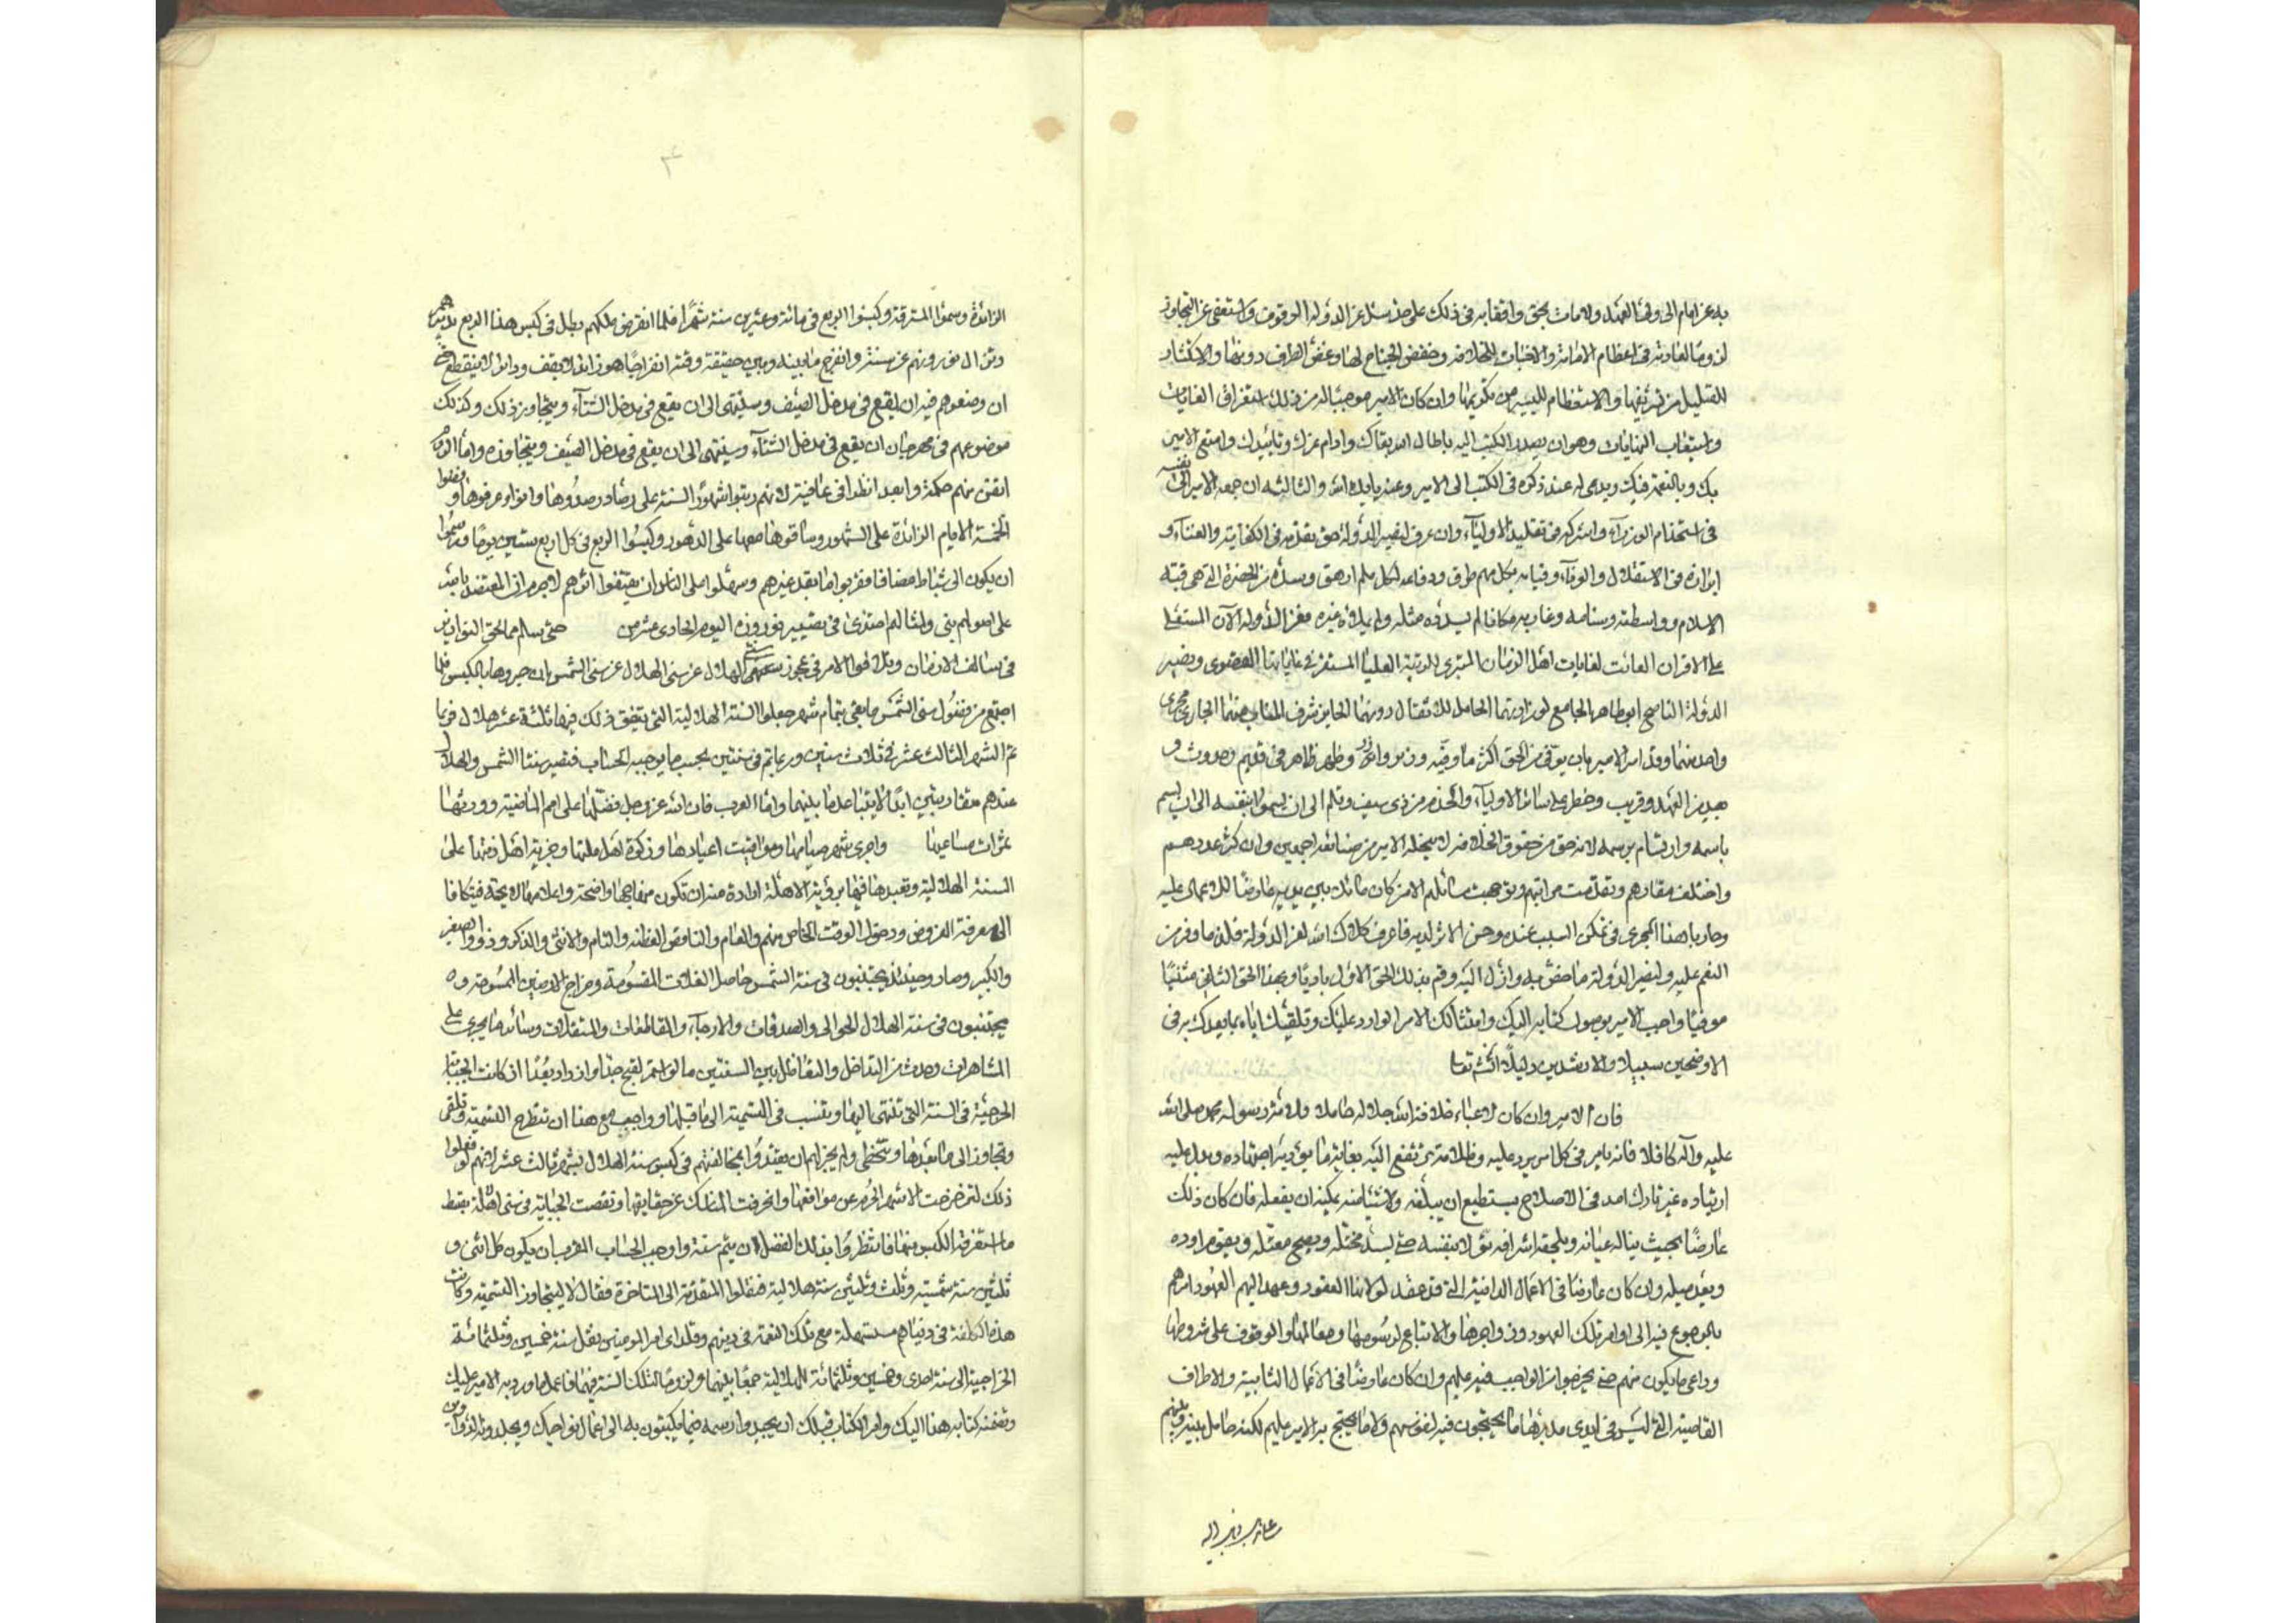 به عن امام الى ولى العهد ولامات بحق وافقا به فى ذلك على حد سئل عز الدولة الوقوف واستعفى عن التجاوز
لزوما لعادته فى اعظام الامانة والاخبات للخلافة وخفض الجناح لها وغض الطرف دونها والاكثار
للقليل من تشريفها والاستعظام لليسير من تكرمتها وان كان الامير موجبا له من ذلك استغراق الغايات
واستيعاب النهايات وهو ان يصدر الكتب اليه باطال الله بقاك وادام عزك وتاييدك وامتع الامير
بك وبالنعمة فيك ويدعى له عند ذكره فى الكتب الى الامير وعنه بايده الله والثالثه ان جمعه الامير الى نفسه
فى استخدام الوزراء واشركه فى تقليد الاولياء وان عرف لنصير الدولة حق تقدمه فى الكفاية والغناء و
ابرازه فى الاستقلال والوفاء وقيامه بكل مهم طرق ودفاعه لكل ملم ارهق وسده من الحضرة التى هى قبة
الاسلام وواسطته وسنامه وغاربه مكانا لم يسده مثله ولم يملاه غيره فعز الدولة الآن المستعلى
على الاقران الفائت لغايات اهل الزمان المتبرى للرتبة العليا المستقر فى غاياتها القصوى ونصير
الدولة الناصح ابو طاهر الجامع لوزارتهما الحامل للاثقال دونهما الحايز شرف المناب عنهما الجارى مجرى
واحد منهما وقد امر الامير بان يوفى من الحق اكثر ما وفيه وزير وازر وظهير ظاهر فى قديم وحدوث و
بعيد من العهد وقريب وحظر على سائر الاولياء والخدم من ذى سيف وقلم الى ان يسموا بنفسه الى ان يسم
باسمه وارتسام برسمه لانه حق من حقوق الخلافة لا ينحله الامير من صنائعه اجمعين وان كثر عددهم
واختلف مقادرهم وتقدمت مراتبهم وتوجهت مسائلهم الا من كان ماثلا بين يديه عارضا للاعمال عليه
وجاريا هذا المجرى فى تمكن السبب عنده وحسن الاثر لديه فاعرف كلاك الله لعز الدولة قدر ما وفر من
النعم عليه ولنصير الدولة ما خص به وازل اليه وقم بذلك الحق الاول باديا وبهذا الحق الثانى مثنيا
موفيا واجب الامير بوصول كتابه اليك وامتثالك الامر الوارد عليك وتلقيك اياه بما يعدك به فى
الاوضحين سبيلا والارشدين دليلا ان شاء الله تعا
فان الامير وان كان لاعباء خلافة الله جل جلاله حاملا ولامة رسوله محمد صلى الله
عليه وآله كافلا فانه يامر فى كل امر يرد عليه وظلامة ترتفع اليه بغاية ما يؤديه اجتهاده ويدل عليه
ارتياده غير تارك امدا فى الاصلاح يستطيع ان يبلغه ولا شيئا منه يمكنه ان يفعله فان كان ذلك
عارضا بحيث يناله عيانه ويلحقه اشرافه تولاه بنفسه حتى يسد مختله ويصح معتله ويقوم اوده
ويعدل ميله وان كان عارضا فى الاعمال الدانية التى قد عقد لولاتها العقود وعهد اليهم العهود امرهم
بالرجوع فيه الى اوامر تلك العهود وزواجرها والاتباع لرسومها ومعالمها والوقوف على شروطها
وداعى ما يكون منهم حتى يخرجوا من الواجب فيه عليهم وان كان عارضا فى الاعمال النائية والاطراف
القاصية التى ليس فى ايدى مدبرها ما يحتجون فيه لنفوسهم ولا ما يحتج به الامير عليهم لكنه حامل بينه وبينهم
الزائدة وسموا المسترقة وكبسوا الربع فى مائة وعشرين سنة شهرا فلما انقرض ملكهم بطل فى كبس هذا الربع تدبيرهم
وزال نوروزهم عن سنته وانفرج ما بينه وبين حقيقة وقته انفراجا هو زائد لا يقف ودائر لا ينقطع حتى
ان وضعوهم فيه ان يقع فى مدخل الصيف وسينتهى الى ان يقع فى مدخل الشتاء ويتجاوز ذلك وكذلك
موضوعهم فى مهرجان ان يقع فى مدخل الشتاء وسينتهى الى ان يقع فى مدخل الصيف ويتجاوزه واما الروم
اتقن منهم حكمة وابعد انظرا فى عاقبة لانهم رتبوا شهور السنة على ارصاد رصدوها وانواء عرفوها وفضوا
الخمسة الايام الزائدة على الشهور وساقوها معها على الدهور وكبسوا الربع فى كل اربع سنين يوما ورسموا
ان يكون الى شباط مضافا فقربوا ما بعد غيرهم وسهلوا على الناس ان يقتفوا اثرهم لاجرم ان المعتضد بالله
على اصولهم بنى ولمثالهم احتذى فى تصيير نوروزه اليوم الحادى عشر من حتى سالم مما لحق النواريز
فى سالف الازمان وتلافوا الامر فى عجز سنى الهلال عن سنى الشمس بان جبروها بالكبس فلما
اجتمع من فضول سنى الشمس ما يفى بتمام شهر جعلوا السنة الهلالية التى يتفق ذلك فيها ثلثة عشر هلالا فربما
تم الشهر الثالث عشر فى ثلاث سنين وربما تم فى سنتين بحسب ما يوجبه الحساب فتصير سنتا الشمس والهلال
عندهم متقاربتين ابدا لا يتباعد ما بينهما واما العرب فان الله عز وجل فضلها على الامم الماضية وورثها
ثمرات مساعيها واجرى شهر صيامها ومواقيت اعيادها وزكوة اهل ملتها وجزية اهل ذمتها على
السنة الهلالية وتعبدها فيها برؤية الاهلة ارادة منه ان تكون مناهجها واضحة واعلامها لائحة فيتكافا
الى معرفة الفروض ودخول الوقت الخاص منهم والعام والناقص الفطنة والتام والانثى والذكر وذوو الصغير
والكبير وصاروا حينئذ يجتنبون فى سنة الشمس حاصل الغلات المقسومة وخراج الارضين الممسوحة و
يجتنبون فى سنة الهلال الجوالى والصدقات والارحاء والمقاطعات والمستغلات وسائر ما يجرى على
المشاهرات وحدث من التداخل والتفاضل بين السنتين ما لو استمر لقبح جدا وازداد بعدا اذ كانت الجباية
الخرجية فى السنة التى تنتهى اليها وتنسب فى التسمية الى ما قبلها وواجب مع هذا ان تطرح التسمية وتلغى
وتتجاوز الى ما بعدها وتتخطى ولم يجز لهم ان يقتدوا بمخالفتهم فى كبس سنة الهلال بشهر ثالث عشر لانهم لو فعلوا
ذلك لتزحزحت الاشهر الحرم عن مواقعها وانحرفت المناسك عن حقايقها ونقصت الجباية فى سنى الاهلة بقسط
ما استغرقه الكبس منها فانتظروا بذلك الفضل ان يتم سنة واوجب الحساب المقرب ان يكون كل اثنى و
ثلثين سنة شمسية وثلث وثلثين سنة هلالية فنقلوا المتقدمة الى المتاخرة نقلا لا يتجاوز التسمية وكانت
هذه الكلفة فى دنياهم مستسهلة مع تلك النعمة فى دينهم وقد راى امير المؤمنين نقل سنة خمسين وثلثمائة
الخراجية الى سنة احدى وخمسين وثلثمائة الهلالية جمعا بينهما ولزوما لتلك السنة فيهما فاعمل بما ورد به الامير عليك
وتضمنه كتابه هذا اليك وامر الكتاب قبلك ان يحتذوا رسمه فيما يكتبون به الى اعمال نواحيك ويخلدونه الدواوين